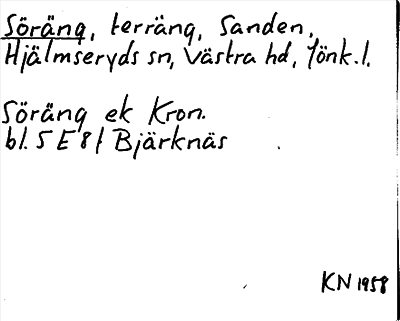 Söräng, terräng, Sanden,
Hjälmseryds sn, Västra hd, Jönk.l.
Söräng ek Kron.
bl. 5 E 8 f Bjärknäs
KN 1958